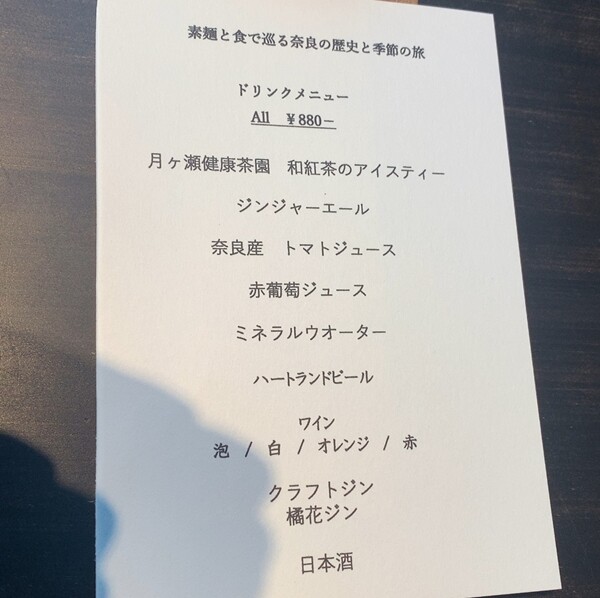 素麺と食で巡る奈良の歴史と季節の旅
ドリンクメニュー
All　￥880－
月ヶ瀬健康茶園　和紅茶のアイスティー
ジンジャーエール
奈良産　トマトジュース
赤葡萄ジュース
ミネラルウオーター
ハートランドビール
ワイン
泡　/　白　/　オレンジ　/　赤
クラフトジン
橘花ジン
日本酒